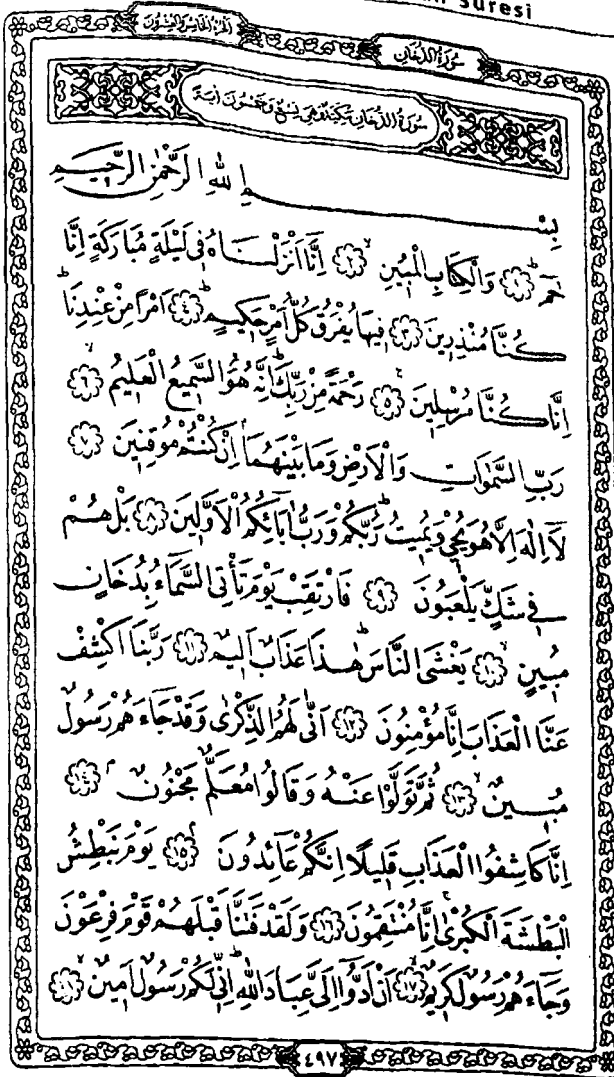 Suresi
اَلْجُزْءُ الْخَامِسُ وَالْعِشْرُونَ
سُورَةُ الدُّخَانِ
سُورَةُ الدُّخَانِ مَكِّيَّةٌ وَهِيَ تِسْعٌ وَخَمْسُونَ اٰيَةً
بِسْمِ اللهِ الرَّحْمٰنِ الرَّحِيمِ
حٰمٓ ﴿١﴾ وَالْكِتَابِ الْمُبِينِ ﴿٢﴾ اِنَّٓا اَنْزَلْنَاهُ فِي لَيْلَةٍ مُبَارَكَةٍ اِنَّا
كُنَّا مُنْذِرِينَ ﴿٣﴾ فِيهَا يُفْرَقُ كُلُّ اَمْرٍ حَكِيمٍ ﴿٤﴾ اَمْرًا مِنْ عِنْدِنَا
اِنَّا كُنَّا مُرْسِلِينَ ﴿٥﴾ رَحْمَةً مِنْ رَبِّكَ اِنَّهُ هُوَ السَّمِيعُ الْعَلِيمُ ﴿٦﴾
رَبِّ السَّمٰوَاتِ وَالْاَرْضِ وَمَا بَيْنَهُمَا اِنْ كُنْتُمْ مُوقِنِينَ ﴿٧﴾
لَٓا اِلٰهَ اِلَّا هُوَ يُحْيِ وَيُمِيتُ رَبُّكُمْ وَرَبُّ اٰبَٓائِكُمُ الْاَوَّلِينَ ﴿٨﴾ بَلْ هُمْ
فِي شَكٍّ يَلْعَبُونَ ﴿٩﴾ فَارْتَقِبْ يَوْمَ تَأْتِي السَّمَٓاءُ بِدُخَانٍ
مُبِينٍ ﴿١٠﴾ يَغْشَى النَّاسَ هٰذَا عَذَابٌ اَلِيمٌ ﴿١١﴾ رَبَّنَا اكْشِفْ
عَنَّا الْعَذَابَ اِنَّا مُؤْمِنُونَ ﴿١٢﴾ اَنّٰى لَهُمُ الذِّكْرٰى وَقَدْ جَٓاءَهُمْ رَسُولٌ
مُبِينٌ ﴿١٣﴾ ثُمَّ تَوَلَّوْا عَنْهُ وَقَالُوا مُعَلَّمٌ مَجْنُونٌ ﴿١٤﴾
اِنَّا كَاشِفُوا الْعَذَابِ قَلِيلًا اِنَّكُمْ عَٓائِدُونَ ﴿١٥﴾ يَوْمَ نَبْطِشُ
الْبَطْشَةَ الْكُبْرٰى اِنَّا مُنْتَقِمُونَ ﴿١٦﴾ وَلَقَدْ فَتَنَّا قَبْلَهُمْ قَوْمَ فِرْعَوْنَ
وَجَٓاءَهُمْ رَسُولٌ كَرِيمٌ ﴿١٧﴾ اَنْ اَدُّٓوا اِلَيَّ عِبَادَ اللهِ اِنِّي لَكُمْ رَسُولٌ اَمِينٌ ﴿١٨﴾
٤٩٧